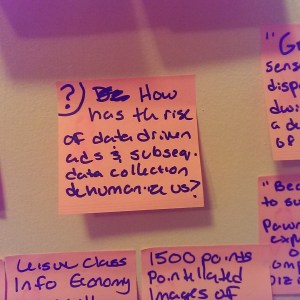 ?) How
has th rise
of data driven
ads & subseq.
data collection
dehumanize us?
"G
sens
disp
a d
of
"Bec
to su
Pawn
exp
o
Leisure Class
Info Economy
1500 points
Pointellated
Images of